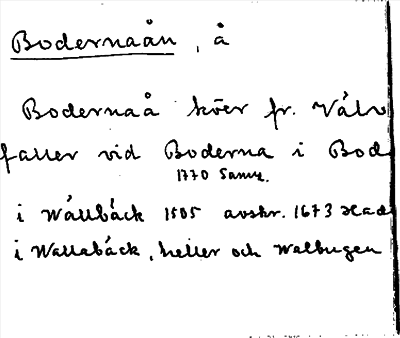 Bodernaån, å
Bodernaå kóer fr. Válv
faller vid Boderna i Bod
1770 Samme.
i Wállbäck 1505 avskr. 1673 Had
i Wallabäck, heller och Walbugen